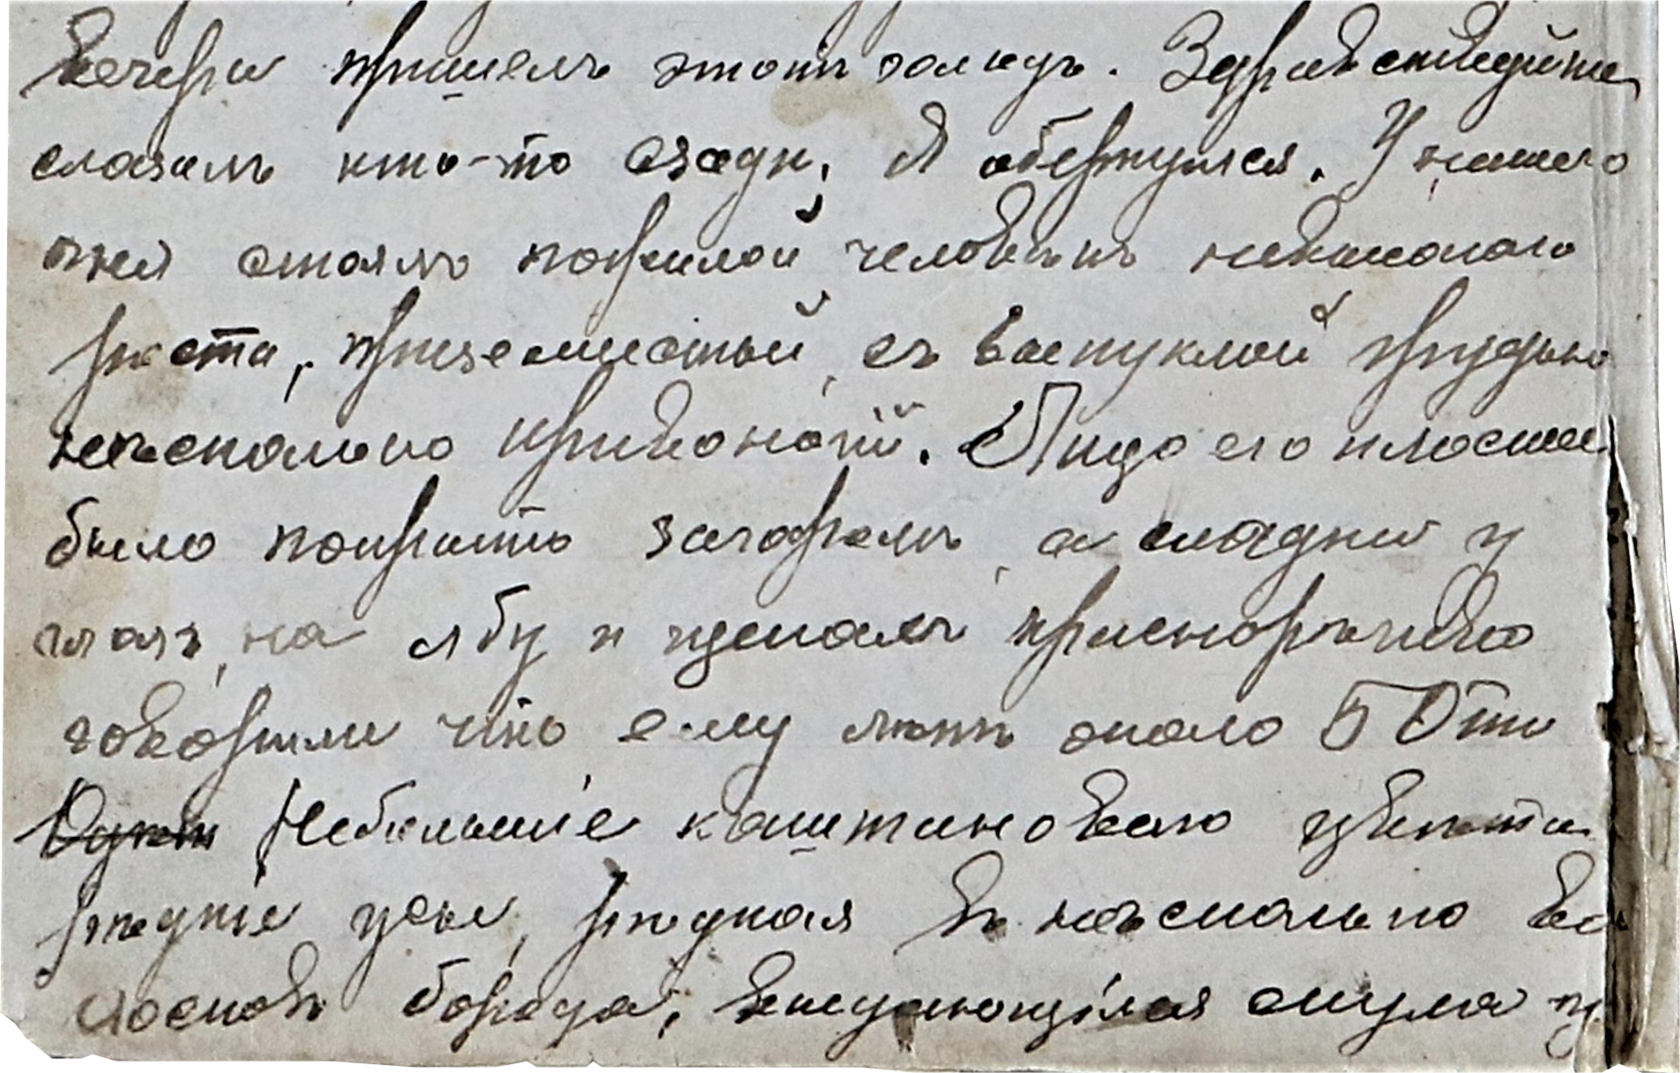 вечера пришелъ этотъ голидъ. Здравствуйте
сказалъ кто-то сзади, Я обернулся. У нашего
огня стоялъ пожилой человѣкъ невысокаго
роста, приземистый, съ выпуклой грудью
нѣсколько кривоногiй. Лицо его плоское
было покрыто загаромъ, а складки у
глазъ, на лбу и щекахъ краснорѣчиво
говорили что ему лѣтъ около 50ти
Небольшiе каштановаго цвѣта
рѣдкiе усы, рѣдкая въ нѣсколько во
лосковъ борода, выдающiяся скулы и